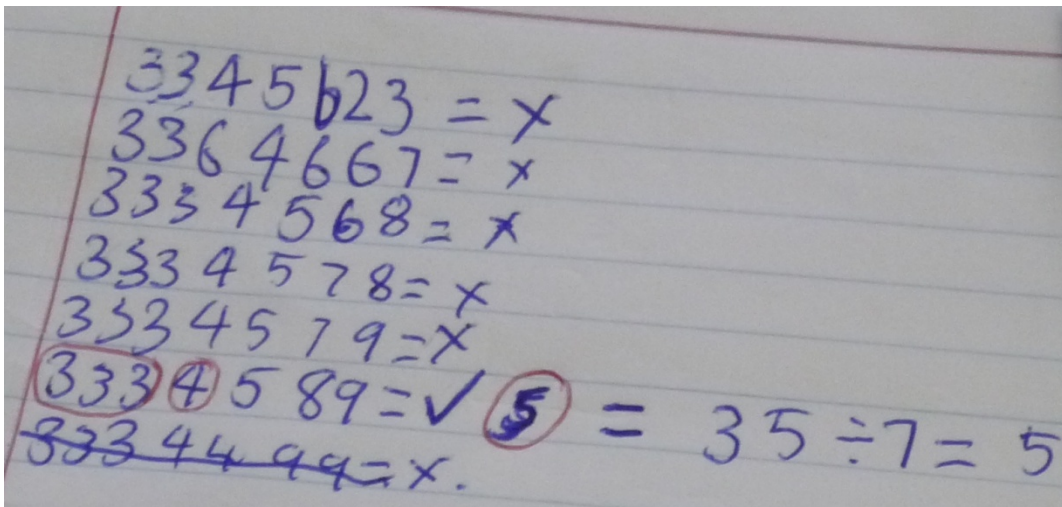 3345623 = x
3364667 = x
3334568 = x
3334578 = x
3334579 = x
3334589 = ✓ 5 = 35 ÷ 7 = 5
3334499 = x.